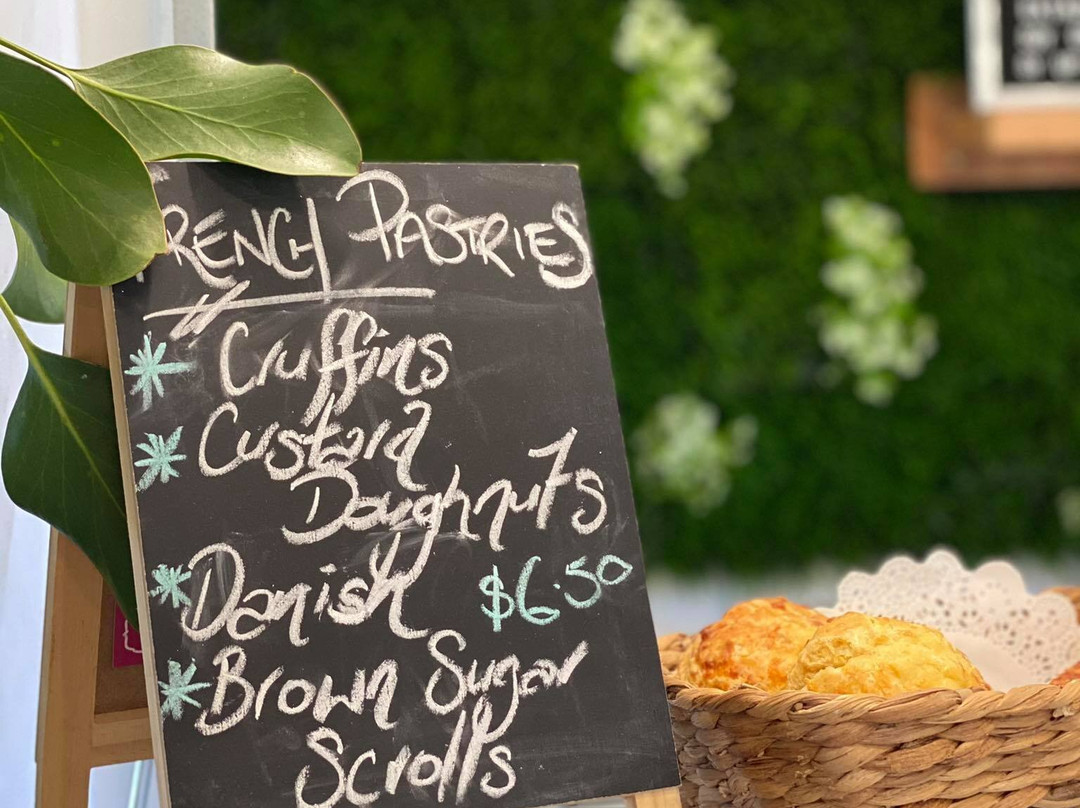 FRENCH PASTRIES
Cruffins
Custard
Doughnuts
Danish $6.50
Brown Sugar
Scrolls